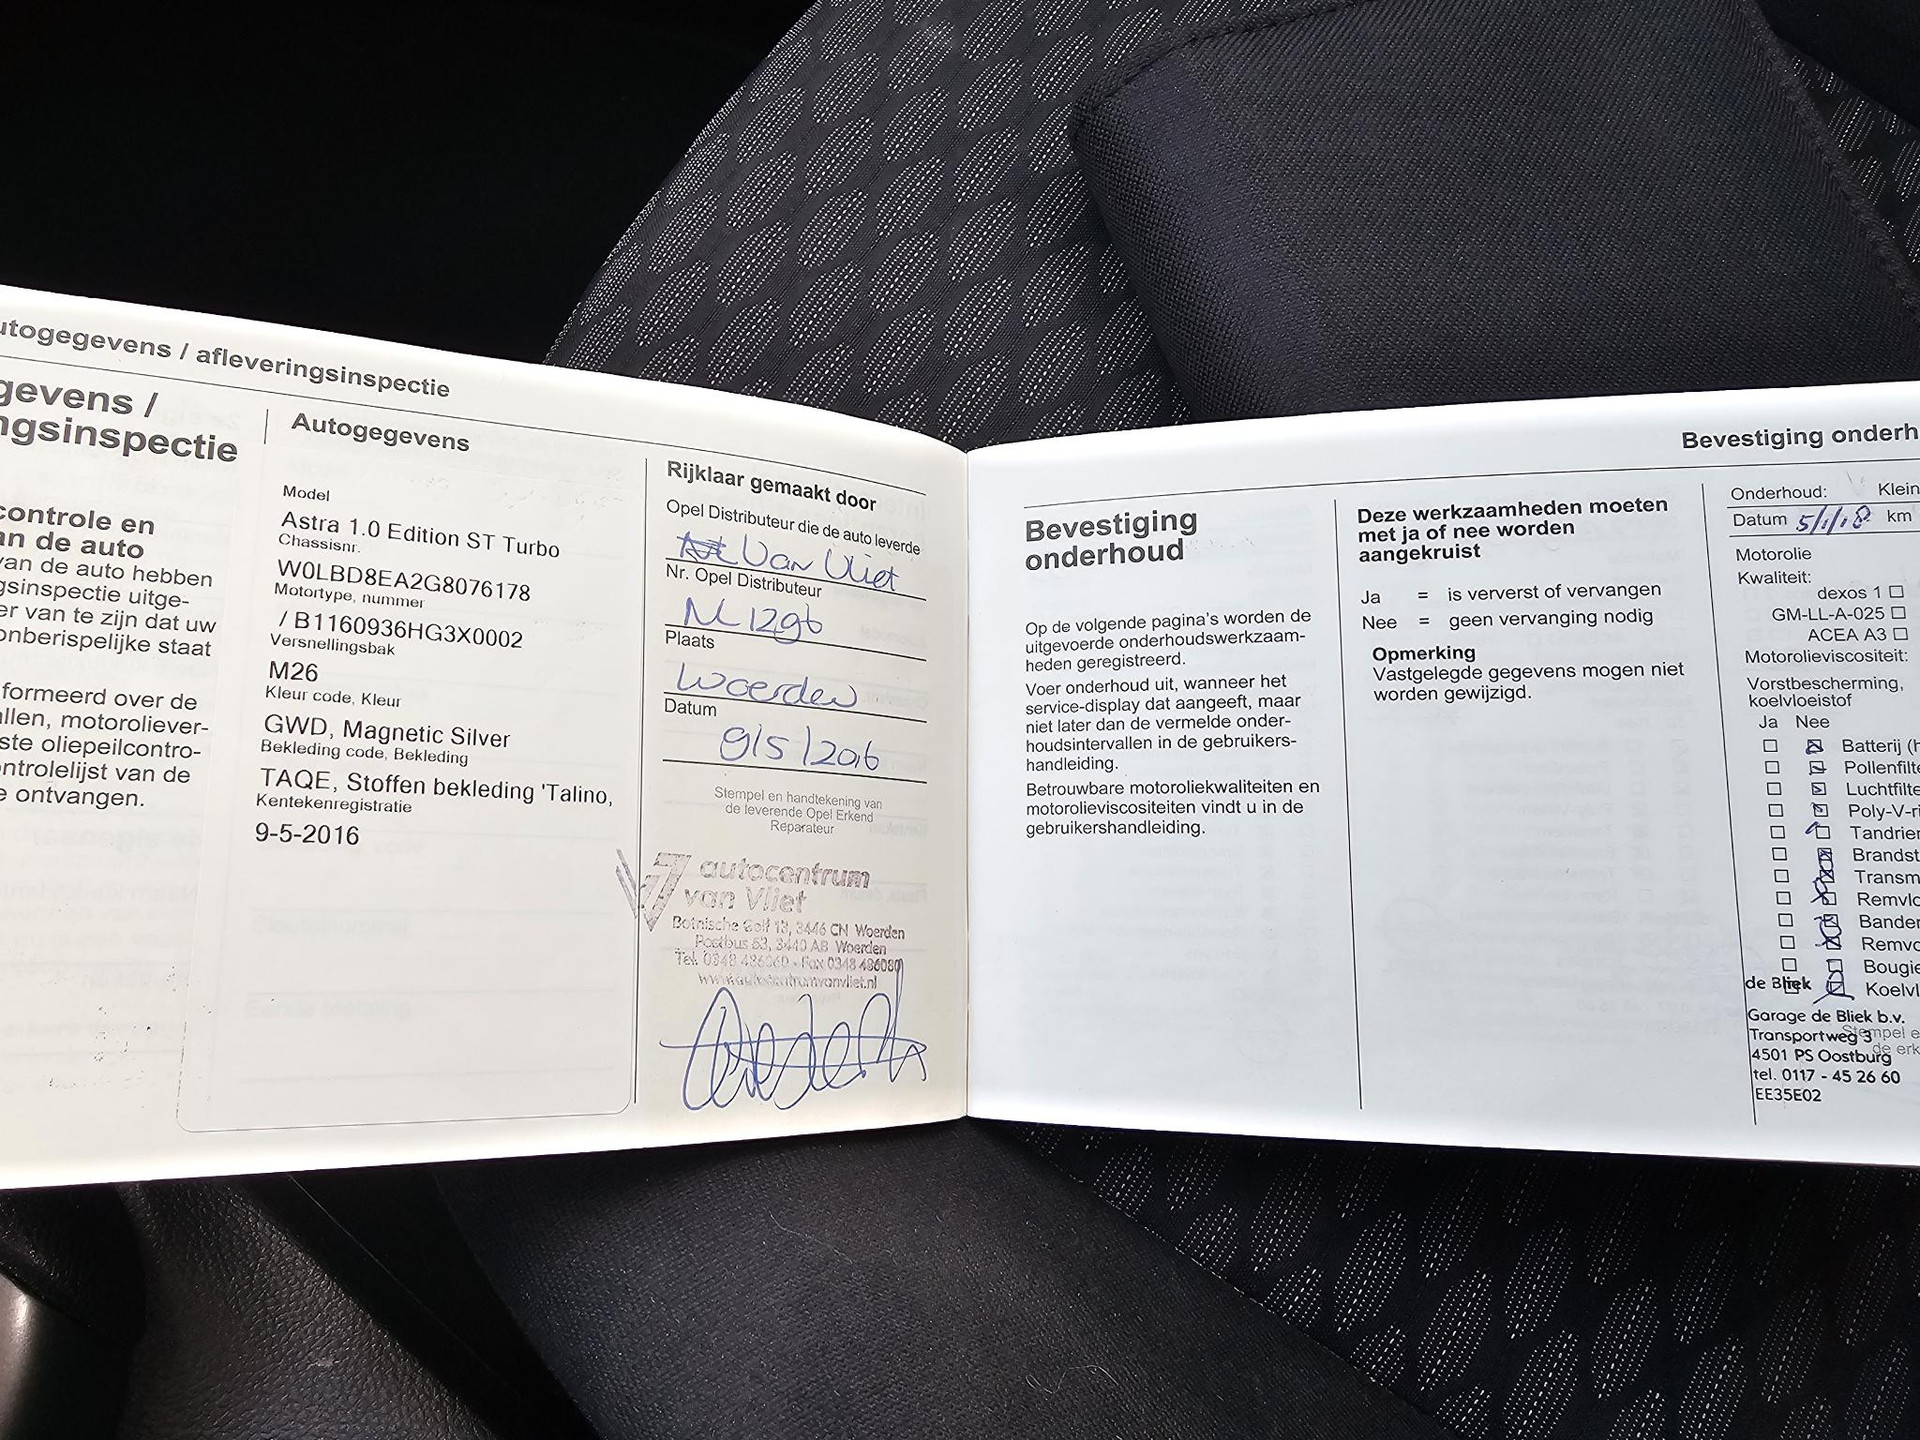 utogegevens / afleveringsinspectie
gevens /
ngsinspectie
controle en
an de auto
van de auto hebben
gsinspectie uitge-
er van te zijn dat uw
onberispelijke staat
formeerd over de
allen, motoroliever-
ste oliepeilcontro-
ntrolelijst van de
e ontvangen.
Autogegevens
Model
Astra 1.0 Edition ST Turbo
Chassisnr.
W0LBD8EA2G8076178
Motortype, nummer
/ B1160936HG3X0002
Versnellingsbak
M26
Kleur code, Kleur
GWD, Magnetic Silver
Bekleding code, Bekleding
TAQE, Stoffen bekleding 'Talino,
Kentekenregistratie
9-5-2016
Rijklaar gemaakt door
Opel Distributeur die de auto leverde
Van Vliet
Nr. Opel Distributeur
NL 1296
Plaats
Woerden
Datum
9/5/2016
Stempel en handtekening van
de leverende Opel Erkend
Reparateur
autocentrum
van Vliet
Botnische Golf 13, 3446 CN Woerden
Postbus 53, 3440 AB Woerden
Tel. 0348 486060 - Fax 0348 486080
www.autocentrumvanvliet.nl
Bevestiging onderh
Bevestiging
onderhoud
Op de volgende pagina's worden de
uitgevoerde onderhoudswerkzaam-
heden geregistreerd.
Voer onderhoud uit, wanneer het
service-display dat aangeeft, maar
niet later dan de vermelde onder-
houdsintervallen in de gebruikers-
handleiding.
Betrouwbare motoroliekwaliteiten en
motorolieviscositeiten vindt u in de
gebruikershandleiding.
Deze werkzaamheden moeten
met ja of nee worden
aangekruist
Ja = is ververst of vervangen
Nee = geen vervanging nodig
Opmerking
Vastgelegde gegevens mogen niet
worden gewijzigd.
Onderhoud: Klein
Datum 5/1/18 km
Motorolie
Kwaliteit:
dexos 1
GM-LL-A-025
ACEA A3
Motorolieviscositeit:
Vorstbescherming,
koelvloeistof
Ja Nee
Batterij (h
Pollenfilte
Luchtfilte
Poly-V-ri
Tandrien
Brandst
Transm
Remvlo
Banden
Remvo
Bougie
Koelvl
de Bliek
Garage de Bliek b.v.
Stempel e
Transportweg 3
de erk
4501 PS Oostburg
tel. 0117 - 45 26 60
EE35E02